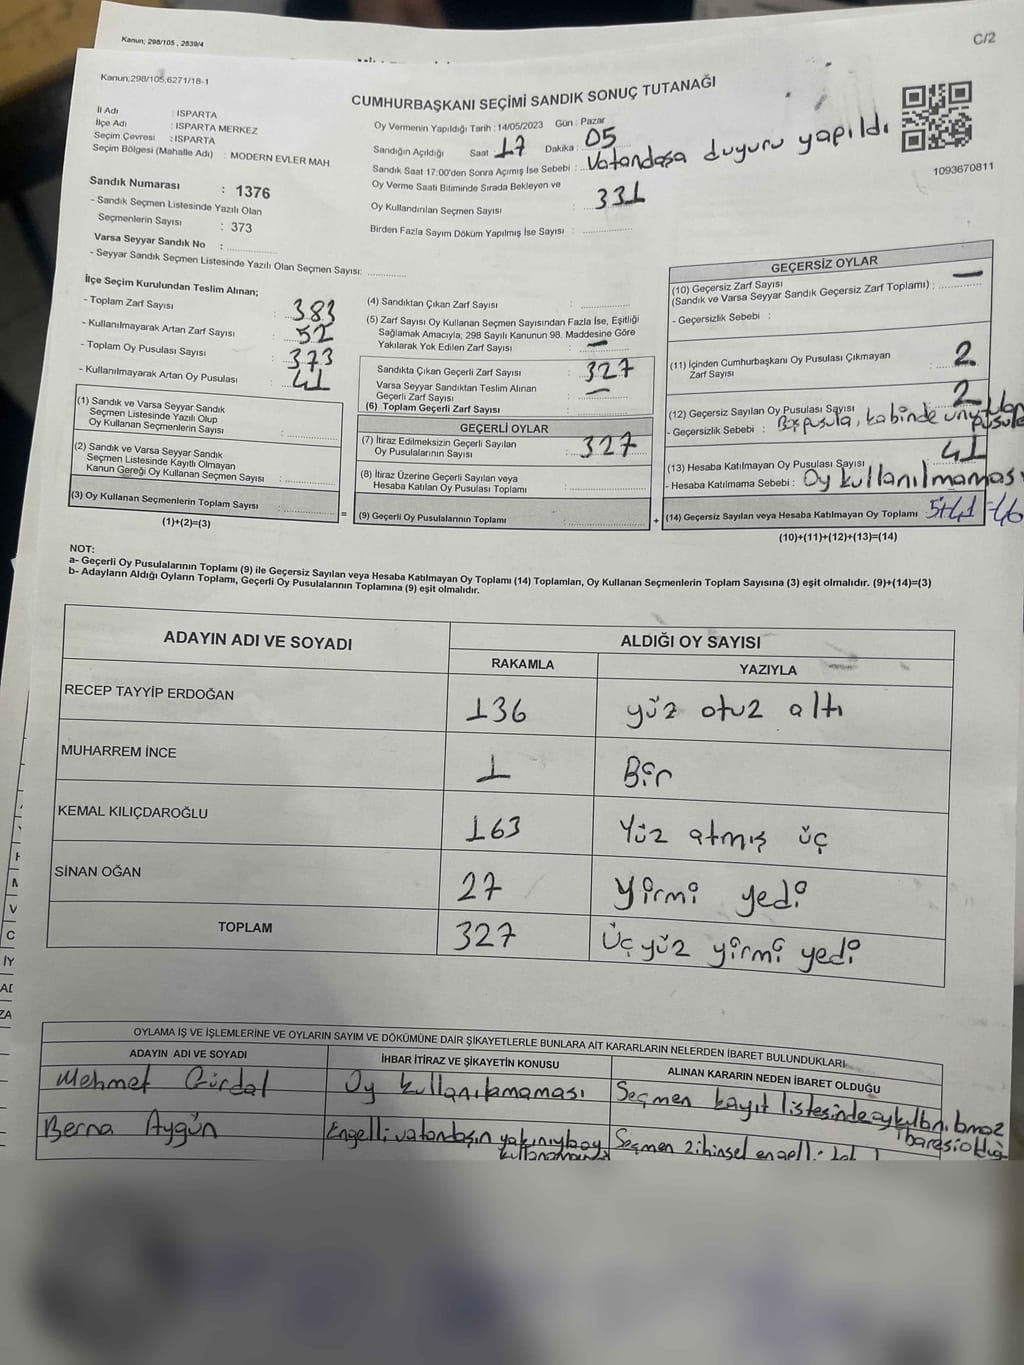 Kanun; 298/105 , 2839/4
C/2
Kanun;298/105,6271/18-1
CUMHURBAŞKANI SEÇİMİ SANDIK SONUÇ TUTANAĞI
İl Adı : ISPARTA
İlçe Adı : ISPARTA MERKEZ
Seçim Çevresi : ISPARTA
Seçim Bölgesi (Mahalle Adı) : MODERN EVLER MAH.
Sandık Numarası : 1376
- Sandık Seçmen Listesinde Yazılı Olan
Seçmenlerin Sayısı : 373
Varsa Seyyar Sandık No :
- Seyyar Sandık Seçmen Listesinde Yazılı Olan Seçmen Sayısı:
Oy Vermenin Yapıldığı Tarih : 14/05/2023 Gün : Pazar
Sandığın Açıldığı Saat : 17 Dakika : 05
Sandık Saat 17:00'den Sonra Açımış İse Sebebi : Vatandaşa duyuru yapıldı
Oy Verme Saati Bitiminde Sırada Bekleyen ve
Oy Kullandırılan Seçmen Sayısı : 331
Birden Fazla Sayım Döküm Yapılmış İse Sayısı :
1093670811
İlçe Seçim Kurulundan Teslim Alınan;
- Toplam Zarf Sayısı : 383
- Kullanılmayarak Artan Zarf Sayısı : 52
- Toplam Oy Pusulası Sayısı : 373
- Kullanılmayarak Artan Oy Pusulası : 41
(1) Sandık ve Varsa Seyyar Sandık
Seçmen Listesinde Yazılı Olup
Oy Kullanan Seçmenlerin Sayısı :
(2) Sandık ve Varsa Seyyar Sandık
Seçmen Listesinde Kayıtlı Olmayan
Kanun Gereği Oy Kullanan Seçmen Sayısı :
(3) Oy Kullanan Seçmenlerin Toplam Sayısı :
(1)+(2)=(3)
(4) Sandıktan Çıkan Zarf Sayısı :
(5) Zarf Sayısı Oy Kullanan Seçmen Sayısından Fazla İse, Eşitliği
Sağlamak Amacıyla; 298 Sayılı Kanunun 98. Maddesine Göre
Yakılarak Yok Edilen Zarf Sayısı : —
Sandıkta Çıkan Geçerli Zarf Sayısı : 327
Varsa Seyyar Sandıktan Teslim Alınan
Geçerli Zarf Sayısı : —
(6) Toplam Geçerli Zarf Sayısı :
GEÇERLİ OYLAR
(7) İtiraz Edilmeksizin Geçerli Sayılan
Oy Pusulalarının Sayısı : 327
(8) İtiraz Üzerine Geçerli Sayılan veya
Hesaba Katılan Oy Pusulası Toplamı :
= (9) Geçerli Oy Pusulalarının Toplamı :
GEÇERSİZ OYLAR
(10) Geçersiz Zarf Sayısı
(Sandık ve Varsa Seyyar Sandık Geçersiz Zarf Toplamı) : —
- Geçersizlik Sebebi :
(11) İçinden Cumhurbaşkanı Oy Pusulası Çıkmayan
Zarf Sayısı : 2
(12) Geçersiz Sayılan Oy Pusulası Sayısı : 2
- Geçersizlik Sebebi : Boş pusula, kabinde unutulan
pusula
(13) Hesaba Katılmayan Oy Pusulası Sayısı : 41
- Hesaba Katılmama Sebebi : Oy kullanılmaması
+ (14) Geçersiz Sayılan veya Hesaba Katılmayan Oy Toplamı 5+41 =46
(10)+(11)+(12)+(13)=(14)
NOT:
a- Geçerli Oy Pusulalarının Toplamı (9) ile Geçersiz Sayılan veya Hesaba Katılmayan Oy Toplamı (14) Toplamları, Oy Kullanan Seçmenlerin Toplam Sayısına (3) eşit olmalıdır. (9)+(14)=(3)
b- Adayların Aldığı Oyların Toplamı, Geçerli Oy Pusulalarının Toplamına (9) eşit olmalıdır.
ADAYIN ADI VE SOYADI
ALDIĞI OY SAYISI
RAKAMLA YAZIYLA
RECEP TAYYİP ERDOĞAN 136 yüz otuz altı
MUHARREM İNCE 1 Bir
KEMAL KILIÇDAROĞLU 163 Yüz atmış üç
SİNAN OĞAN 27 Yirmi yedi
TOPLAM 327 Üç yüz yirmi yedi
OYLAMA İŞ VE İŞLEMLERİNE VE OYLARIN SAYIM VE DÖKÜMÜNE DAİR ŞİKAYETLERLE BUNLARA AİT KARARLARIN NELERDEN İBARET BULUNDUKLARI
ADAYIN ADI VE SOYADI
İHBAR İTİRAZ VE ŞİKAYETİN KONUSU
ALINAN KARARIN NEDEN İBARET OLDUĞU
Mehmet Gürdal Oy kullanılmaması Seçmen kayıt listesinde
ibaresi
Berna Aygün Engelli vatandaşın yakını
Seçmen zihinsel engelli